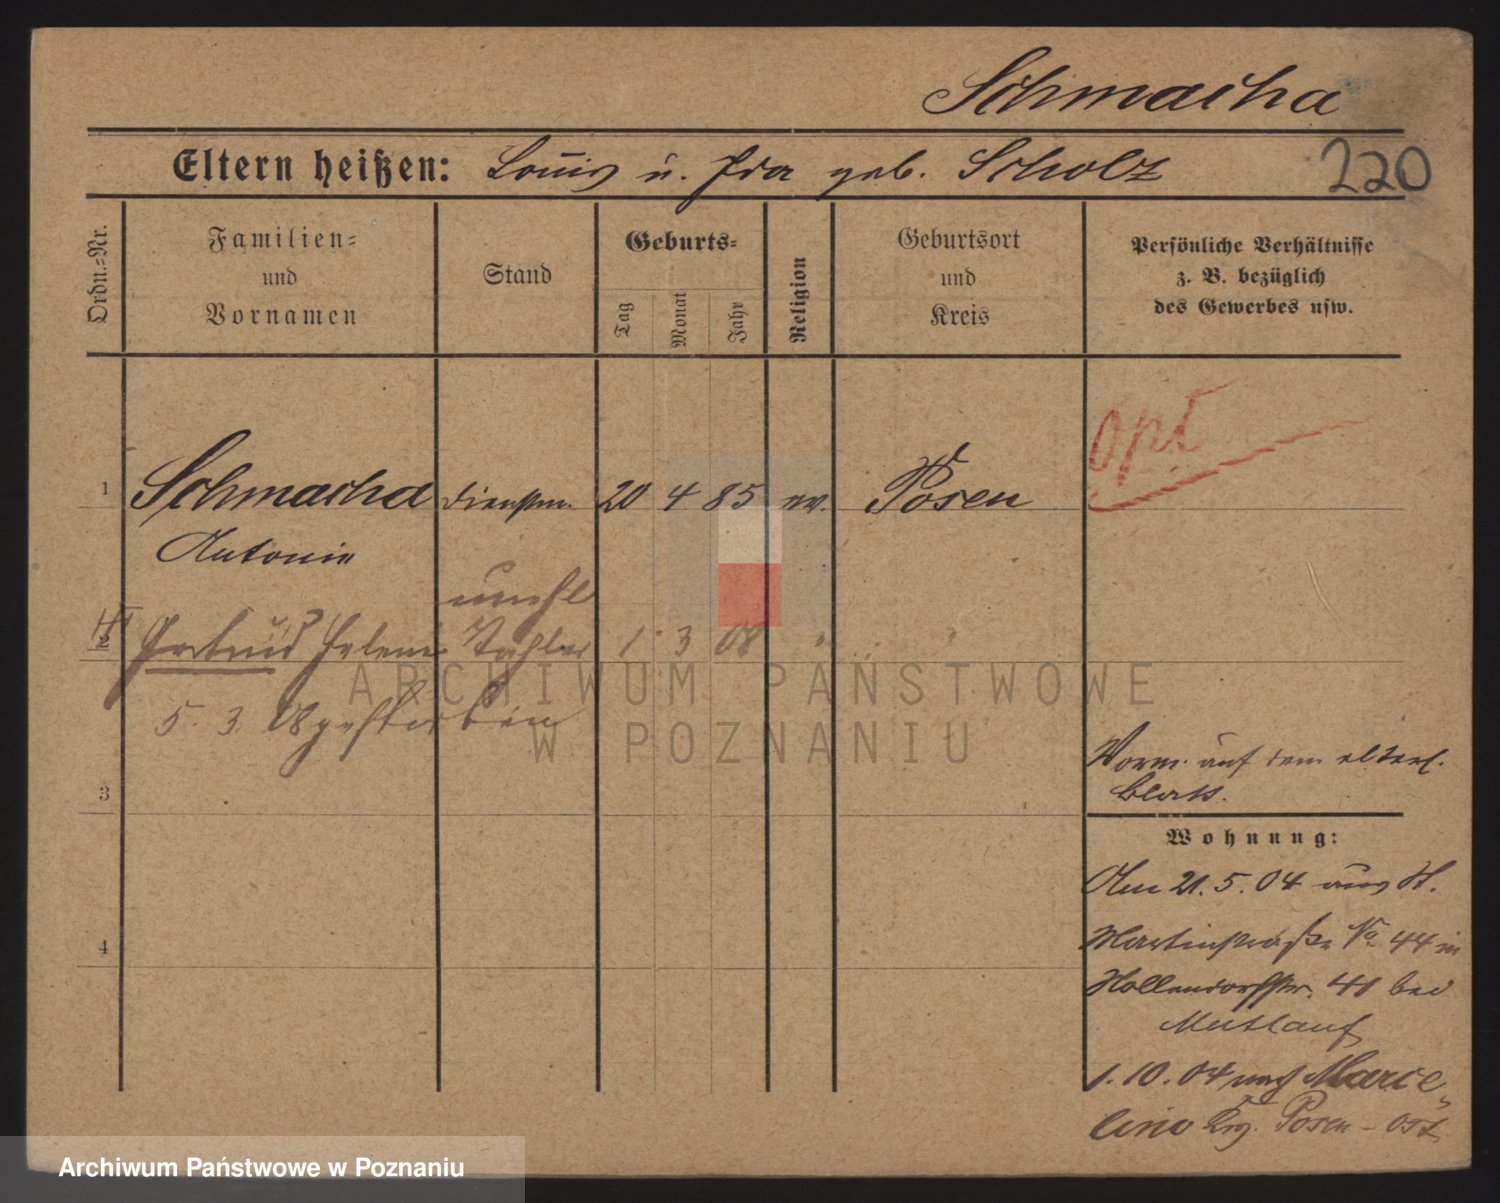 Schmacha
Eltern heißen: Louis u. Ida geb. Scholz
220
Ordn.=Nr.
Familien=
und
Vornamen
Stand
Geburts=
Tag
Monat
Jahr
Religion
Geburtsort
und
Kreis
Persönliche Verhältnisse
z. B. bezüglich
des Gewerbes usw.
opt
1 Schmacha Dienstm. 20 4 85 ev. Posen
Antonie
unehl
2 Gertrud Helene Tochter 1 3 08 " "
5. 3. 08 gestorben
Vorm. auf dem elterl.
Blatt.
3
Wohnung:
Am 21. 5. 04 aus St.
Martinstraße No 44 in
4
Hollendorffstr. 41 bei
1. 10. 04 nach Marce„
lino Krs. Posen - Ost
ARCHIWUM PAŃSTWOWE
W POZNANIU
Archiwum Państwowe w Poznaniu